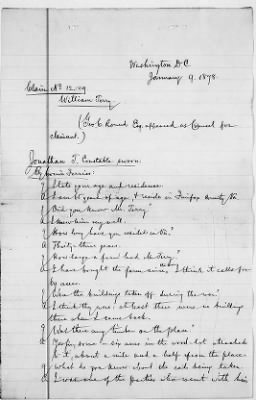 Washington D.C.
January 9. 1878.
Claim No 12,109
William Terry
(Geo. C. Round Esq. appeared as Counsel for
claimant.)
Jonathan T. Constable sworn:
By Comr Ferriss:
Q State your age and residence.
A I am years of age & reside in Fairfax County Va.
Q Did you know Mr. Terry?
A I knew him very well.
Q How long have you resided in Va?
A Thirty-three years.
Q How large a farm had Mr. Terry?
A I have bought the farm since, I think it calls for
acres.
Q Was the buildings taken off during the war?
A I think they was, at least there were no buildings
there when I came back.
Q Was there any timber on the place?
A Yes sir, some - six acres in the wood-lot attached
to it, about a mile and a half from the place.
Q What do you know about the oats being taken
A I was one of the parties who went with him